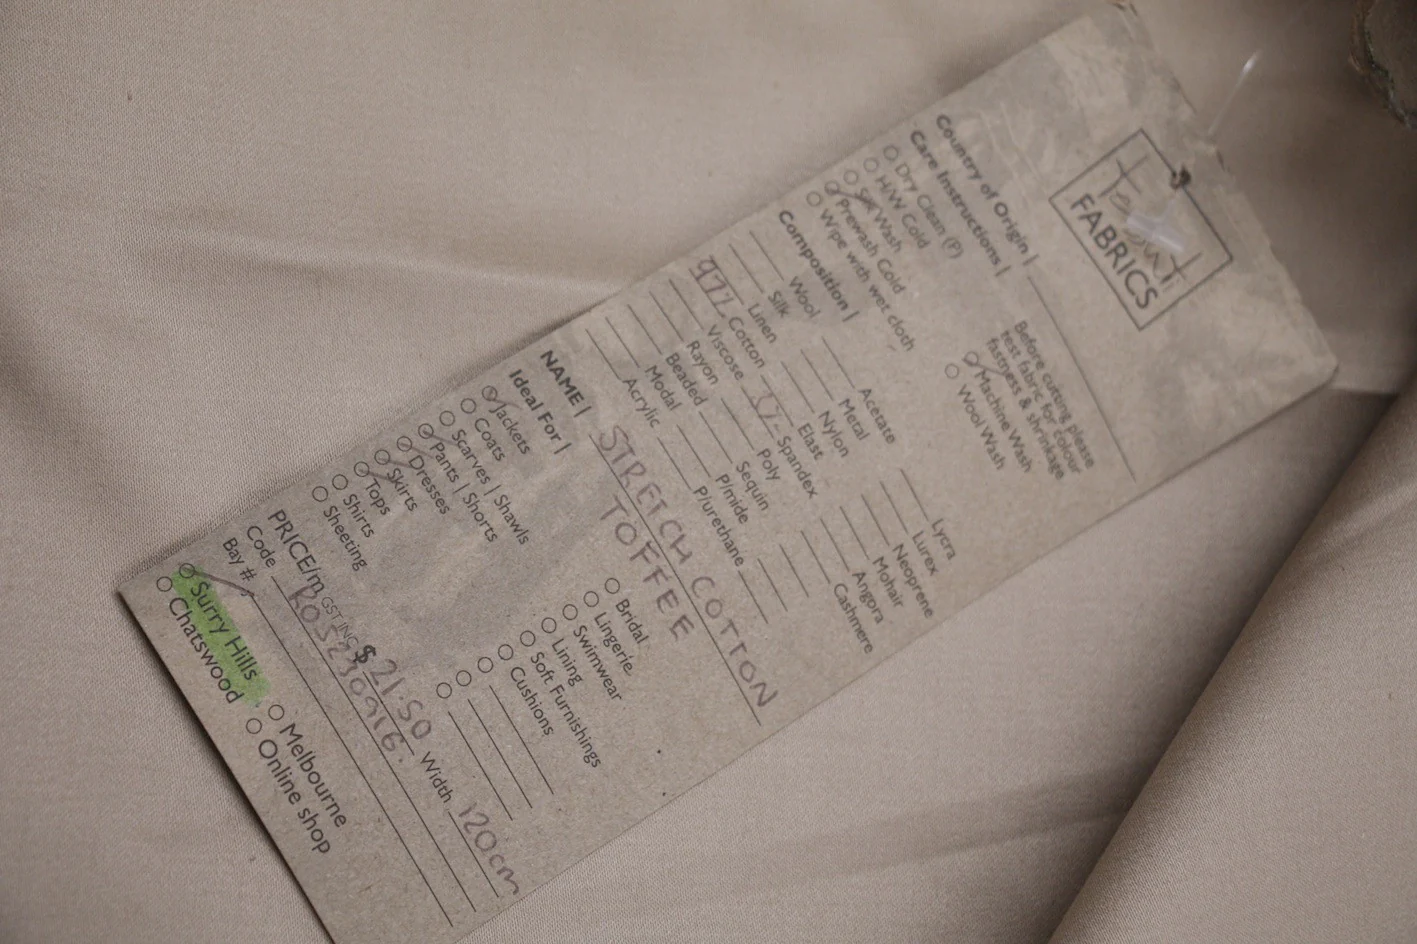 FABRICS
Country of Origin |
Care Instructions |
Before cutting please
test fabric for colour
fastness & shrinkage
Dry Clean (P)
H/W Cold
Wash
Prewash Cold
Wipe with wet cloth
Machine Wash
Wool Wash
Composition |
Wool
Silk
Linen
97% Cotton
Viscose
Rayon
Beaded
Modal
Acrylic
Acetate
Metal
Nylon
Elast
3% Spandex
Poly
Sequin
P/mide
P/urethane
Lycra
Lurex
Neoprene
Mohair
Angora
Cashmere
NAME | STRETCH COTTON
TOFFEE
Ideal For |
Jackets
Coats
Scarves | Shawls
Pants | Shorts
Dresses
Skirts
Tops
Shirts
Sheeting
Bridal
Lingerie
Swimwear
Lining
Soft Furnishings
Cushions
PRICE/m GST INC $21.50 Width 120cm
Code
Bay #
Surry Hills
Chatswood
Melbourne
Online shop